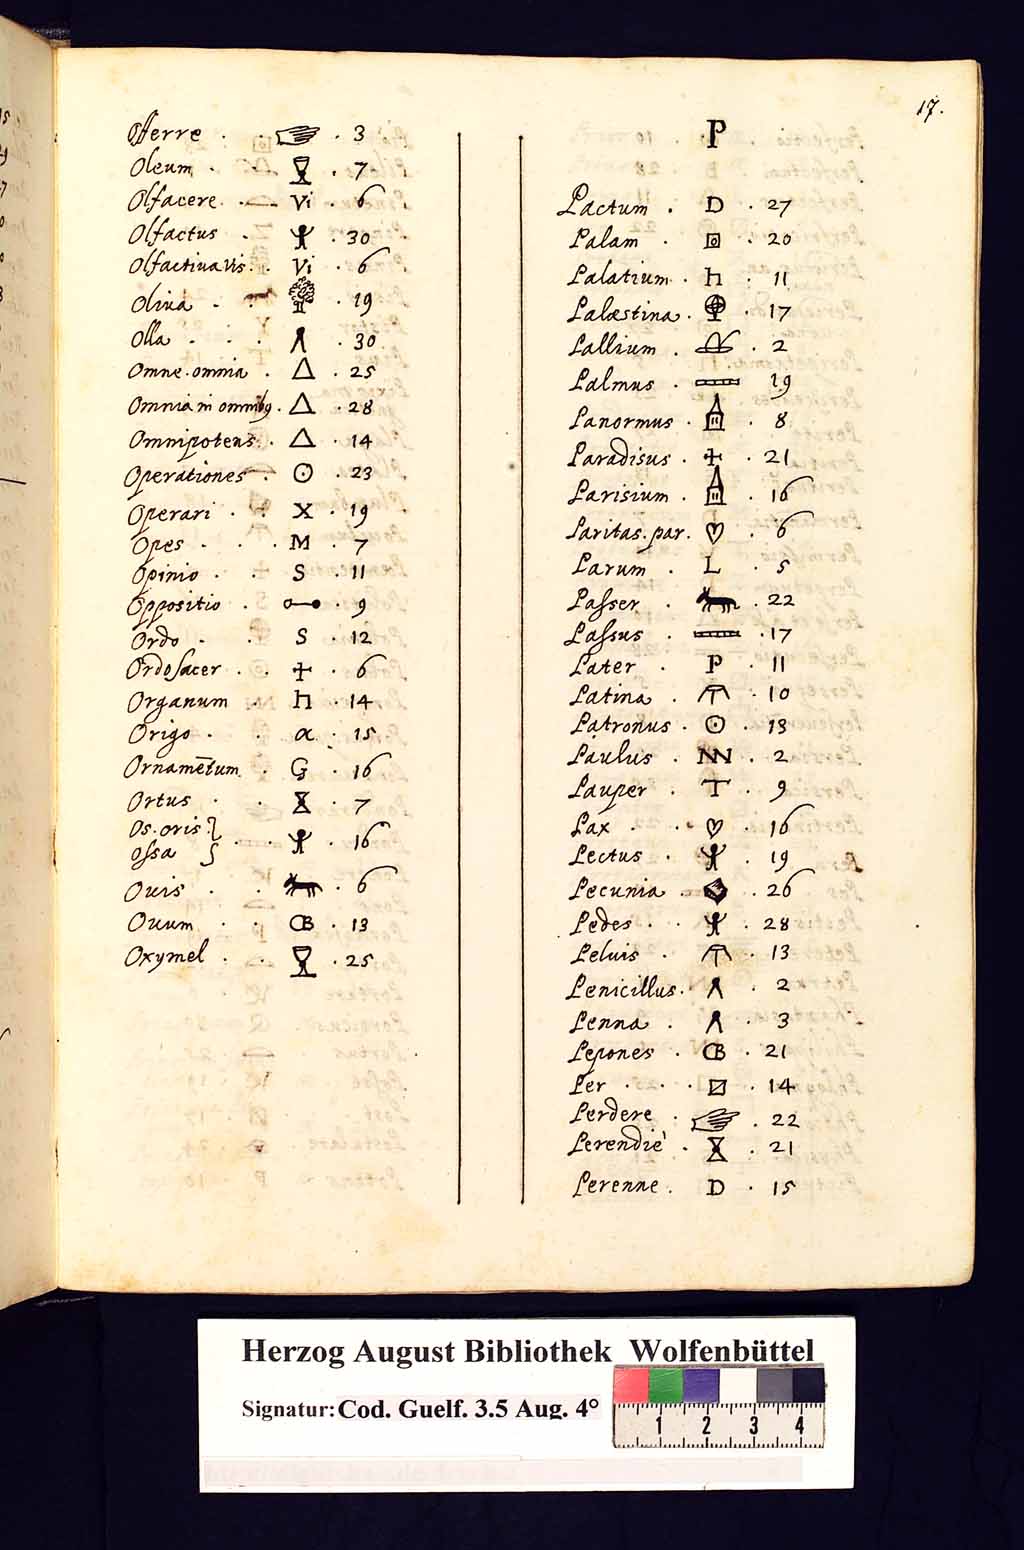 17.
Offerre . . 3
Oleum . . 7
Olfacere . Vi . 6
Olfactus . . 30
Olfactiua Vis . Vi . 6
Oliua . . 19
Olla . . . 30
Omne . omnia . Δ . 25
Omnia in omnibus . Δ . 28
Omnipotens . Δ . 14
Operationes ☉ . 23
Operari . . X . 19
Opes . . . M . 7
Opinio . . S . 11
Oppositio . . 9
Ordo . . S . 12
Ordo sacer . . 6
Organum . h . 14
Origo . . α . 15
Ornamētum . G . 16
Ortus . . . 7
Os . oris
ossa . . 16
Ouis . . . 6
Ouum . . CB . 13
Oxymel . . . 25
P
Pactum . D . 27
Palam . . 20
Palatium . h . 11
Palæstina . . 17
Pallium . . 2
Palmus . 19
Panormus . . 8
Paradisus . . 21
Parisium . . 16
Paritas . par . ♡ . 6
Parum . L . 5
Passer . . 22
Passus . . 17
Pater . P . 11
Patina . . 10
Patronus . ☉ . 13
Paulus . . 2
Pauper . T . 9
Pax . . ♡ . 16
Pectus . . 19
Pecunia . . 26
Pedes . . . 28
Peluis . . 13
Penicillus . . 2
Penna . . 3
Pepones . CB . 21
Per . . . . 14
Perdere . . 22
Perendiè . . 21
Perenne . D . 15
Herzog August Bibliothek Wolfenbüttel
Signatur: Cod. Guelf. 3.5 Aug. 4°
1 2 3 4